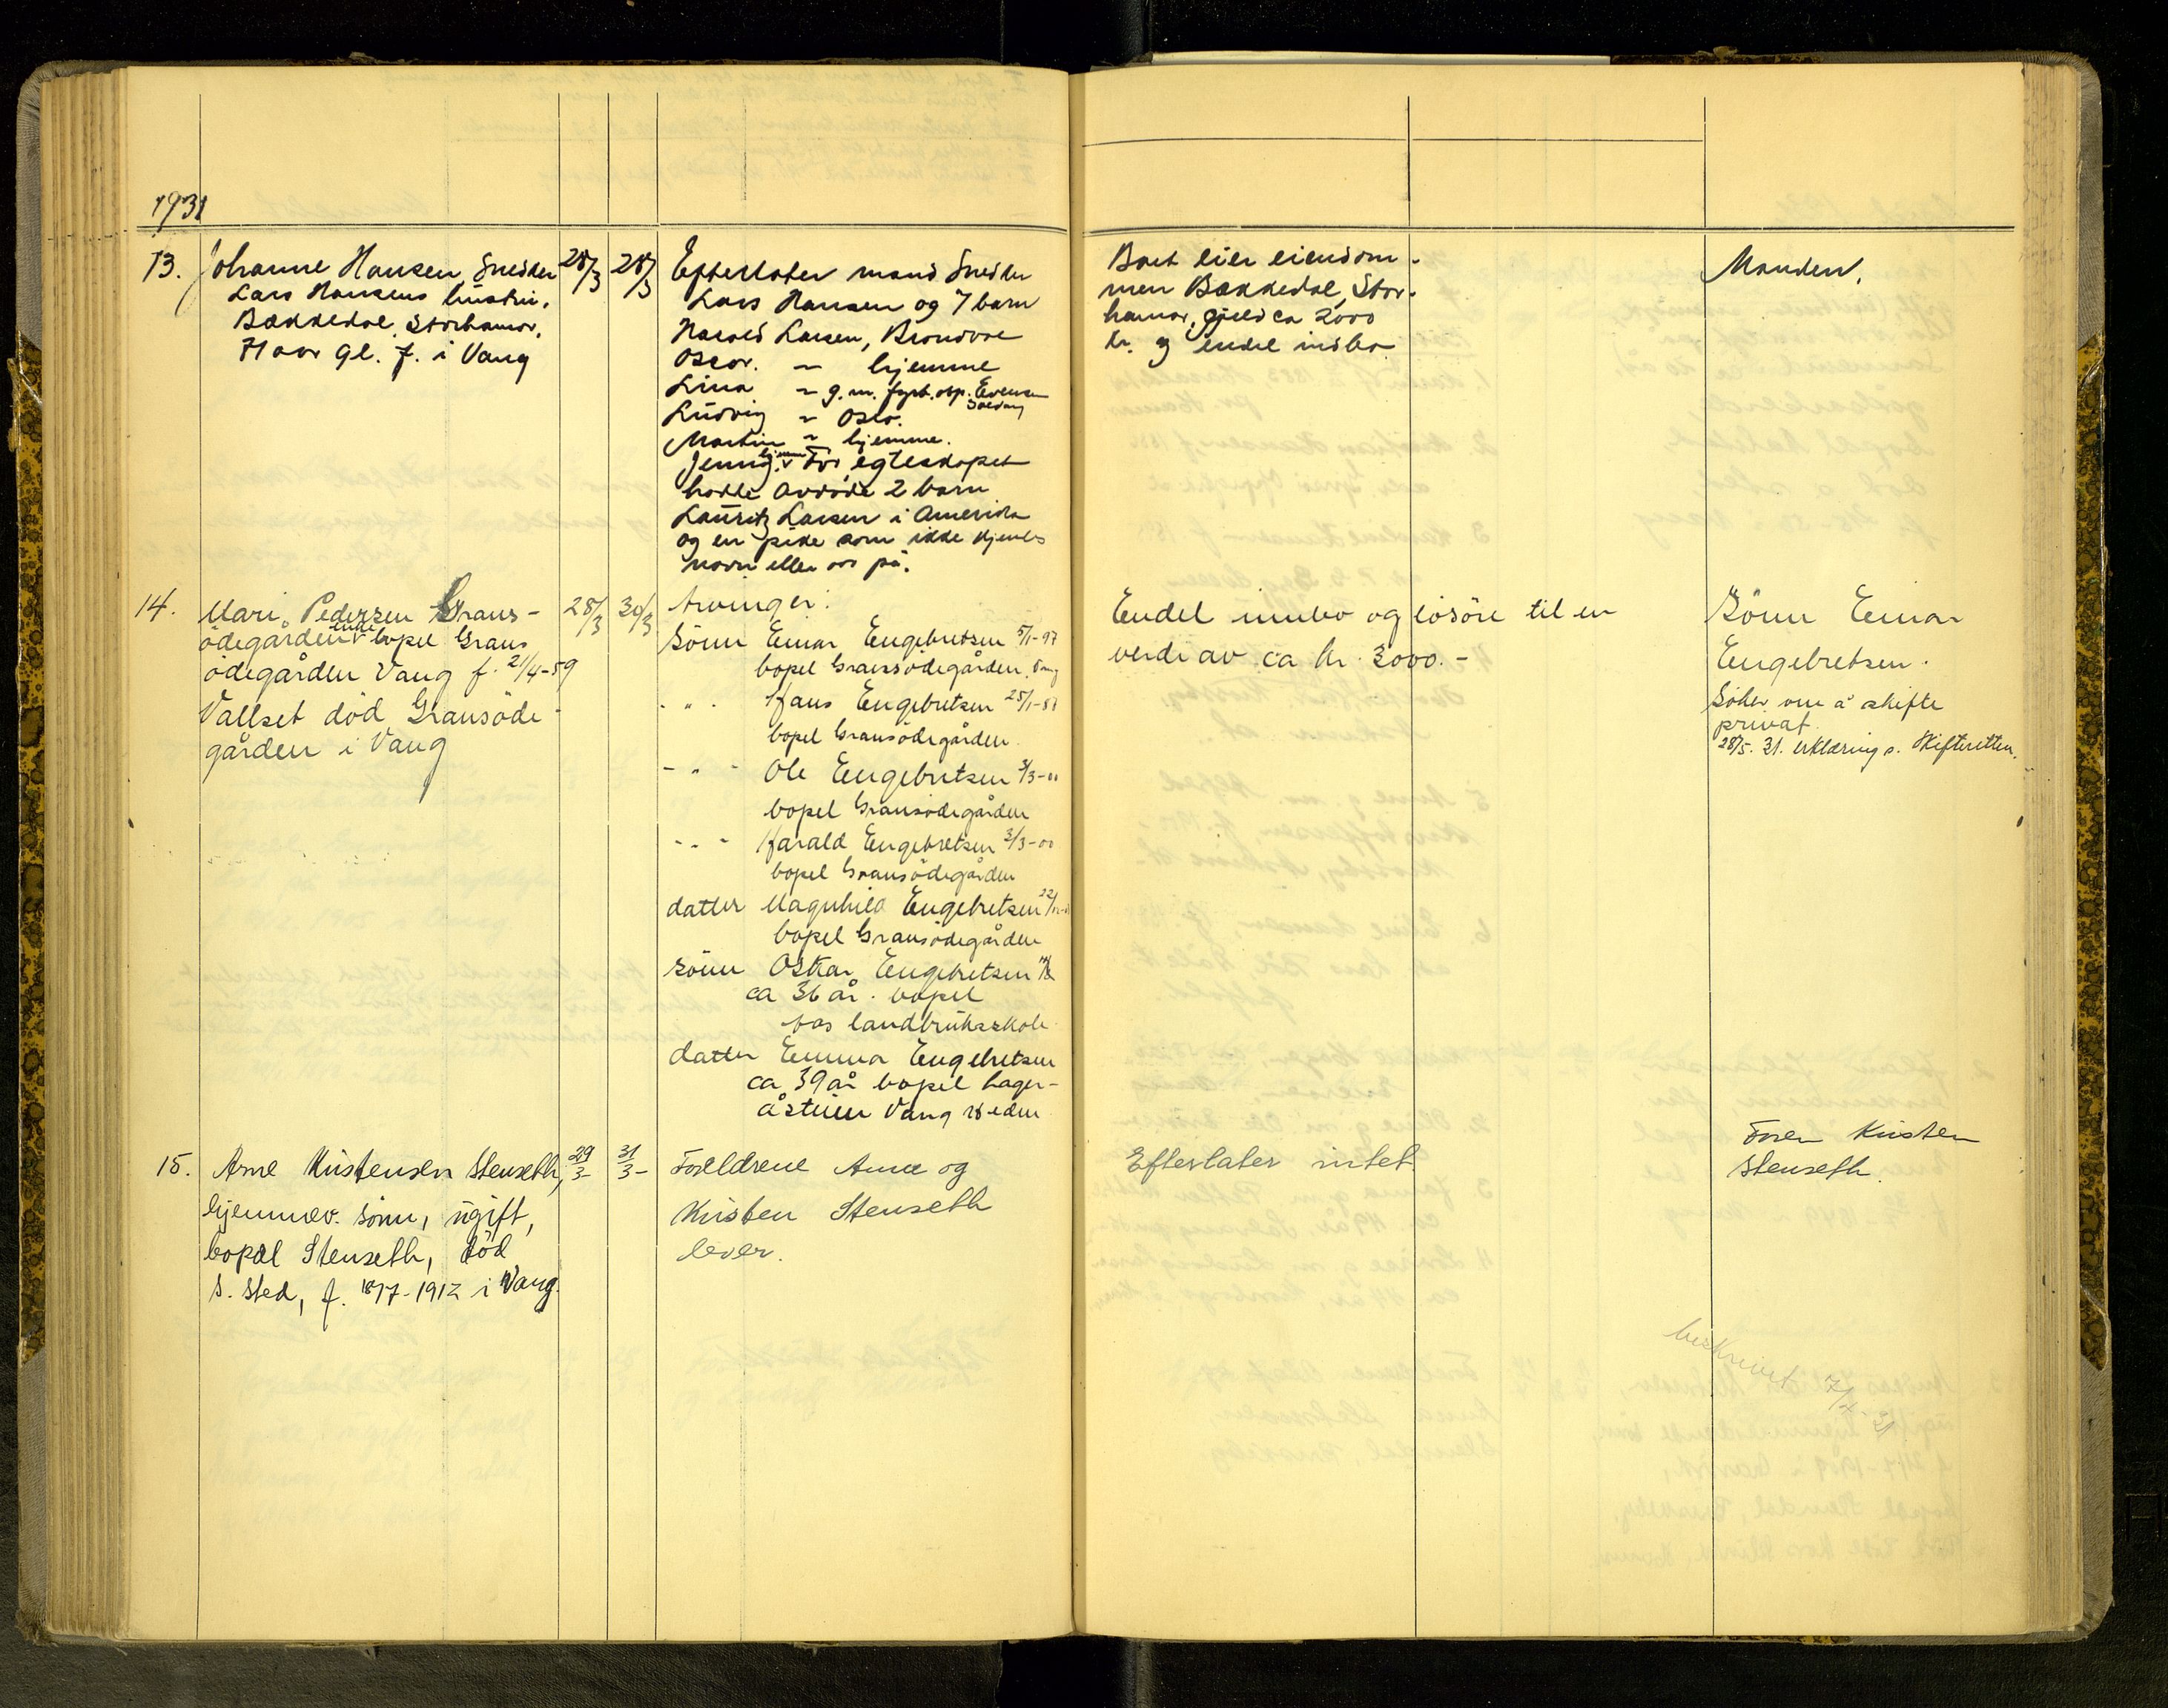 1931
13. Johanne Hansen Snedker 28/3 28/3
Lars Hansens hustru,
Bækkedal, Storhamar,
71 aar gl. f. i Vang
Efterlater mand Snedker
Lars Hansen og 7 barn
Harald Larsen,
Oscar. — hjemme
Lina — g. m. Evensen
Ludvig — Oslo.
Martin — hjemme.
Jenny hjemme. For egteskapet
hadde avdøde 2 barn
Lauritz Larsen i Amerika
og en pike som ikke kjendes
navn eller aar på.
Boet eier eiendom-
men Bækkedal, Stor-
hamar, gjeld ca 2000
kr. og endel indbo
Manden.
14. Mari Pedersen Grans- 28/3 30/3
ödegården enke bopel Grans
ödegården Vang f. 21/4-59
Vallset död Gransöde-
gården i Vang
Arvinger:
Sönn Einar Engebretsen 5/1-97
bopel Gransödegården, Vang
- " - Hans Engebretsen 25/1-87
bopel Gransödegården.
- " - Ole Engebretsen 3/3-00
bopel Gransödegården
- " - Harald Engebretsen 3/3-00
bopel Gransödegården
datter Magnhild Engebretsen
bopel Gransödegården
sönn Oskar Engebretsen
ca 36 år. bopel
landbruksskole
datter Emma Engebretsen
ca 39 år bopel Hager-
åstuen Vang
Endel innbo og lösöre til en
verdi av ca kr. 3000.-
Sönn Einar
Engebretsen.
Söker om å skifte
privat.
28/5. 31. erklæring s. Skifteretten.
15. Arne Kristensen Stenseth, 29/3- 31/3-
hjemmev. sönn, ugift,
bopæl Stenseth, död
s. sted, f. 18/7-1912 i Vang.
Foreldrene Anna og
Kristen Stenseth
lever.
Efterlater intet.
Faren Kristen
Stenseth.
beskrevet 7/4-31